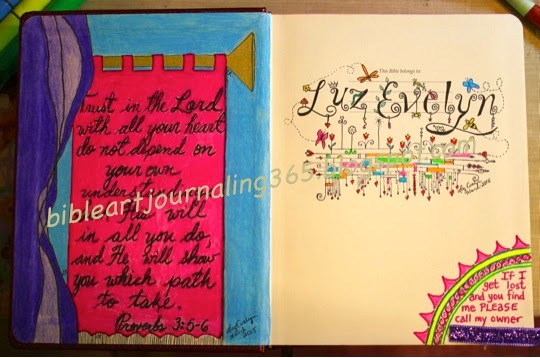 Trust in the Lord
with all your heart
do not depend on
your own
will
in all you do,
and He will show
you which path
to take.
Proverbs 3:5-6
2015
This Bible belongs to:
Luz Evelyn
2015
If I
get lost
and you find
me PLEASE
call my owner
bibleartjournaling365